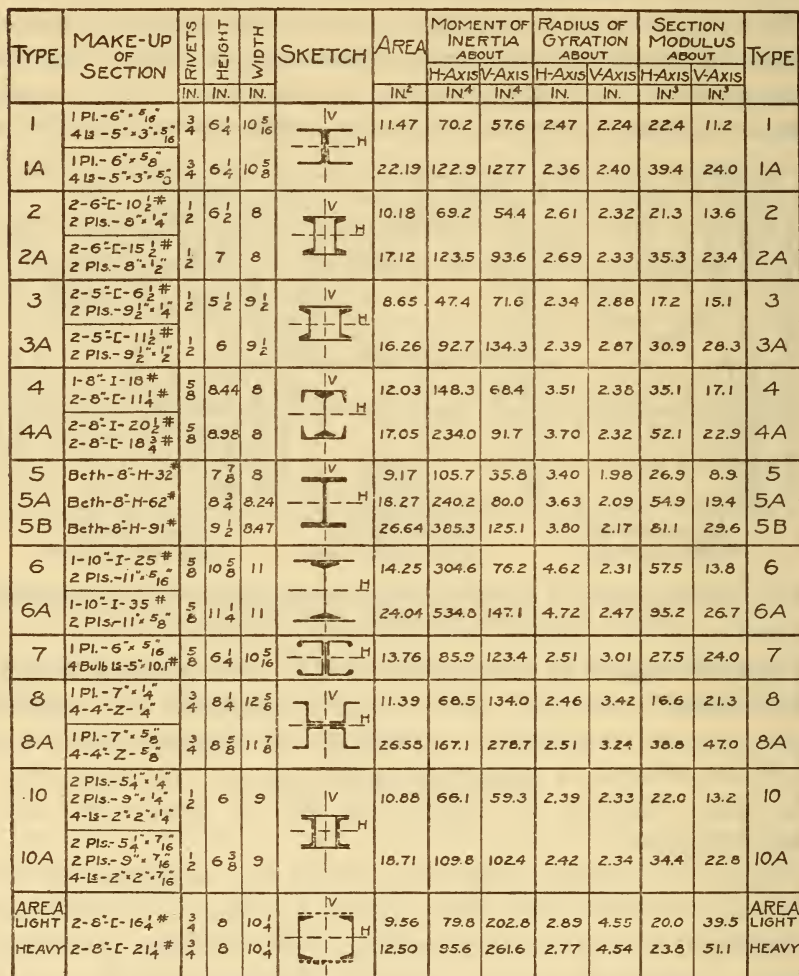 TYPE MAKE-UP OF SECTION RIVETS HEIGHT WIDTH SKETCH AREA MOMENT OF INERTIA ABOUT RADIUS OF GYRATION ABOUT SECTION MODULUS ABOUT TYPE
H-AXIS V-AXIS H-AXIS V-AXIS H-AXIS V-AXIS
IN. IN. IN. IN.² IN.⁴ IN.⁴ IN. IN. IN.³ IN.³
1 1 Pl.-6"×5/16" 4 Ls-5"×3"×5/16" 3/4 6 1/4 10 5/16 V H 11.47 70.2 57.6 2.47 2.24 22.4 11.2 1
1A 1 Pl.-6"×5/8" 4 Ls-5"×3"× 3/4 6 1/4 10 5/8 22.19 122.9 127.7 2.36 2.40 39.4 24.0 1A
2 2-6"-[-10 1/2# 2 Pls.-8"×1/4" 1/2 6 1/2 8 V H 10.18 69.2 54.4 2.61 2.32 21.3 13.6 2
2A 2-6"-[-15 1/2# 2 Pls.-8"×1/2" 1/2 7 8 17.12 123.5 93.6 2.69 2.33 35.3 23.4 2A
3 2-5"-[-6 1/2# 2 Pls.-9 1/2"×1/4" 1/2 5 1/2 9 1/2 V H 8.65 47.4 71.6 2.34 2.88 17.2 15.1 3
3A 2-5"-[-11 1/2# 2 Pls.-9 1/2"×1/2" 1/2 6 9 1/2 16.26 92.7 134.3 2.39 2.87 30.9 28.3 3A
4 1-8"-I-18# 2-8"-[-11 1/4# 5/8 8.44 8 V H 12.03 148.3 68.4 3.51 2.38 35.1 17.1 4
4A 2-8"-I-20 1/2# 2-8"-[-18 3/4# 5/8 8.98 8 17.05 234.0 91.7 3.70 2.32 52.1 22.9 4A
5 Beth-8"-H-32# 7 7/8 8 V H 9.17 105.7 35.8 3.40 1.98 26.9 8.9 5
5A Beth-8"-H-62# 8 3/4 8.24 18.27 240.2 80.0 3.63 2.09 54.9 19.4 5A
5B Beth-8"-H-91# 9 1/2 8.47 26.64 385.3 125.1 3.80 2.17 81.1 29.6 5B
6 1-10"-I-25# 2 Pls.-11"×5/16" 5/8 10 5/8 11 V H 14.25 304.6 76.2 4.62 2.31 57.5 13.8 6
6A 1-10"-I-35# 2 Pls.-11"×5/8" 5/8 11 1/4 11 24.04 534.8 147.1 4.72 2.47 95.2 26.7 6A
7 1 Pl.-6"×5/16" 4 Bulb Ls-5"×10.1# 5/8 6 1/4 10 5/16 V H 13.76 85.9 123.4 2.51 3.01 27.5 24.0 7
8 1 Pl.-7"×1/4" 4-4"-Z-1/4" 3/4 8 1/4 12 5/8 V H 11.39 68.5 134.0 2.46 3.42 16.6 21.3 8
8A 1 Pl.-7"×5/8" 4-4"-Z-5/8" 3/4 8 5/8 11 7/8 26.55 167.1 278.7 2.51 3.24 38.8 47.0 8A
10 2 Pls.-5 1/4"×1/4" 2 Pls.-9"×1/4" 4-Ls-2"×2"×1/4" 1/2 6 9 V H 10.88 66.1 59.3 2.39 2.33 22.0 13.2 10
10A 2 Pls.-5 1/4"×7/16" 2 Pls.-9"×7/16" 4-Ls-2"×2"×7/16" 1/2 6 3/8 9 18.71 109.8 102.4 2.42 2.34 34.4 22.8 10A
AREA LIGHT 2-8"-[-16 1/4# 3/4 8 10 1/4 V H 9.56 79.8 202.8 2.89 4.55 20.0 39.5 AREA LIGHT
HEAVY 2-8"-[-21 1/4# 3/4 8 10 1/4 12.50 95.6 261.6 2.77 4.54 23.8 51.1 HEAVY